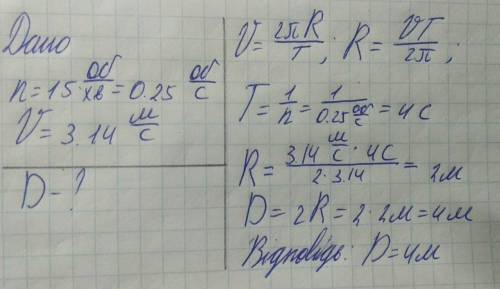 Дано
n = 15 об/хв = 0.25 об/с
V = 3.14 м/с
D - ?
V = 2πR/T ; R = VT/2π ;
T = 1/n = 1/0.25 об/с = 4 с
R = 3.14 м/с · 4с / 2 · 3.14 = 2м
D = 2R = 2 · 2м = 4м
Відповідь: D = 4м